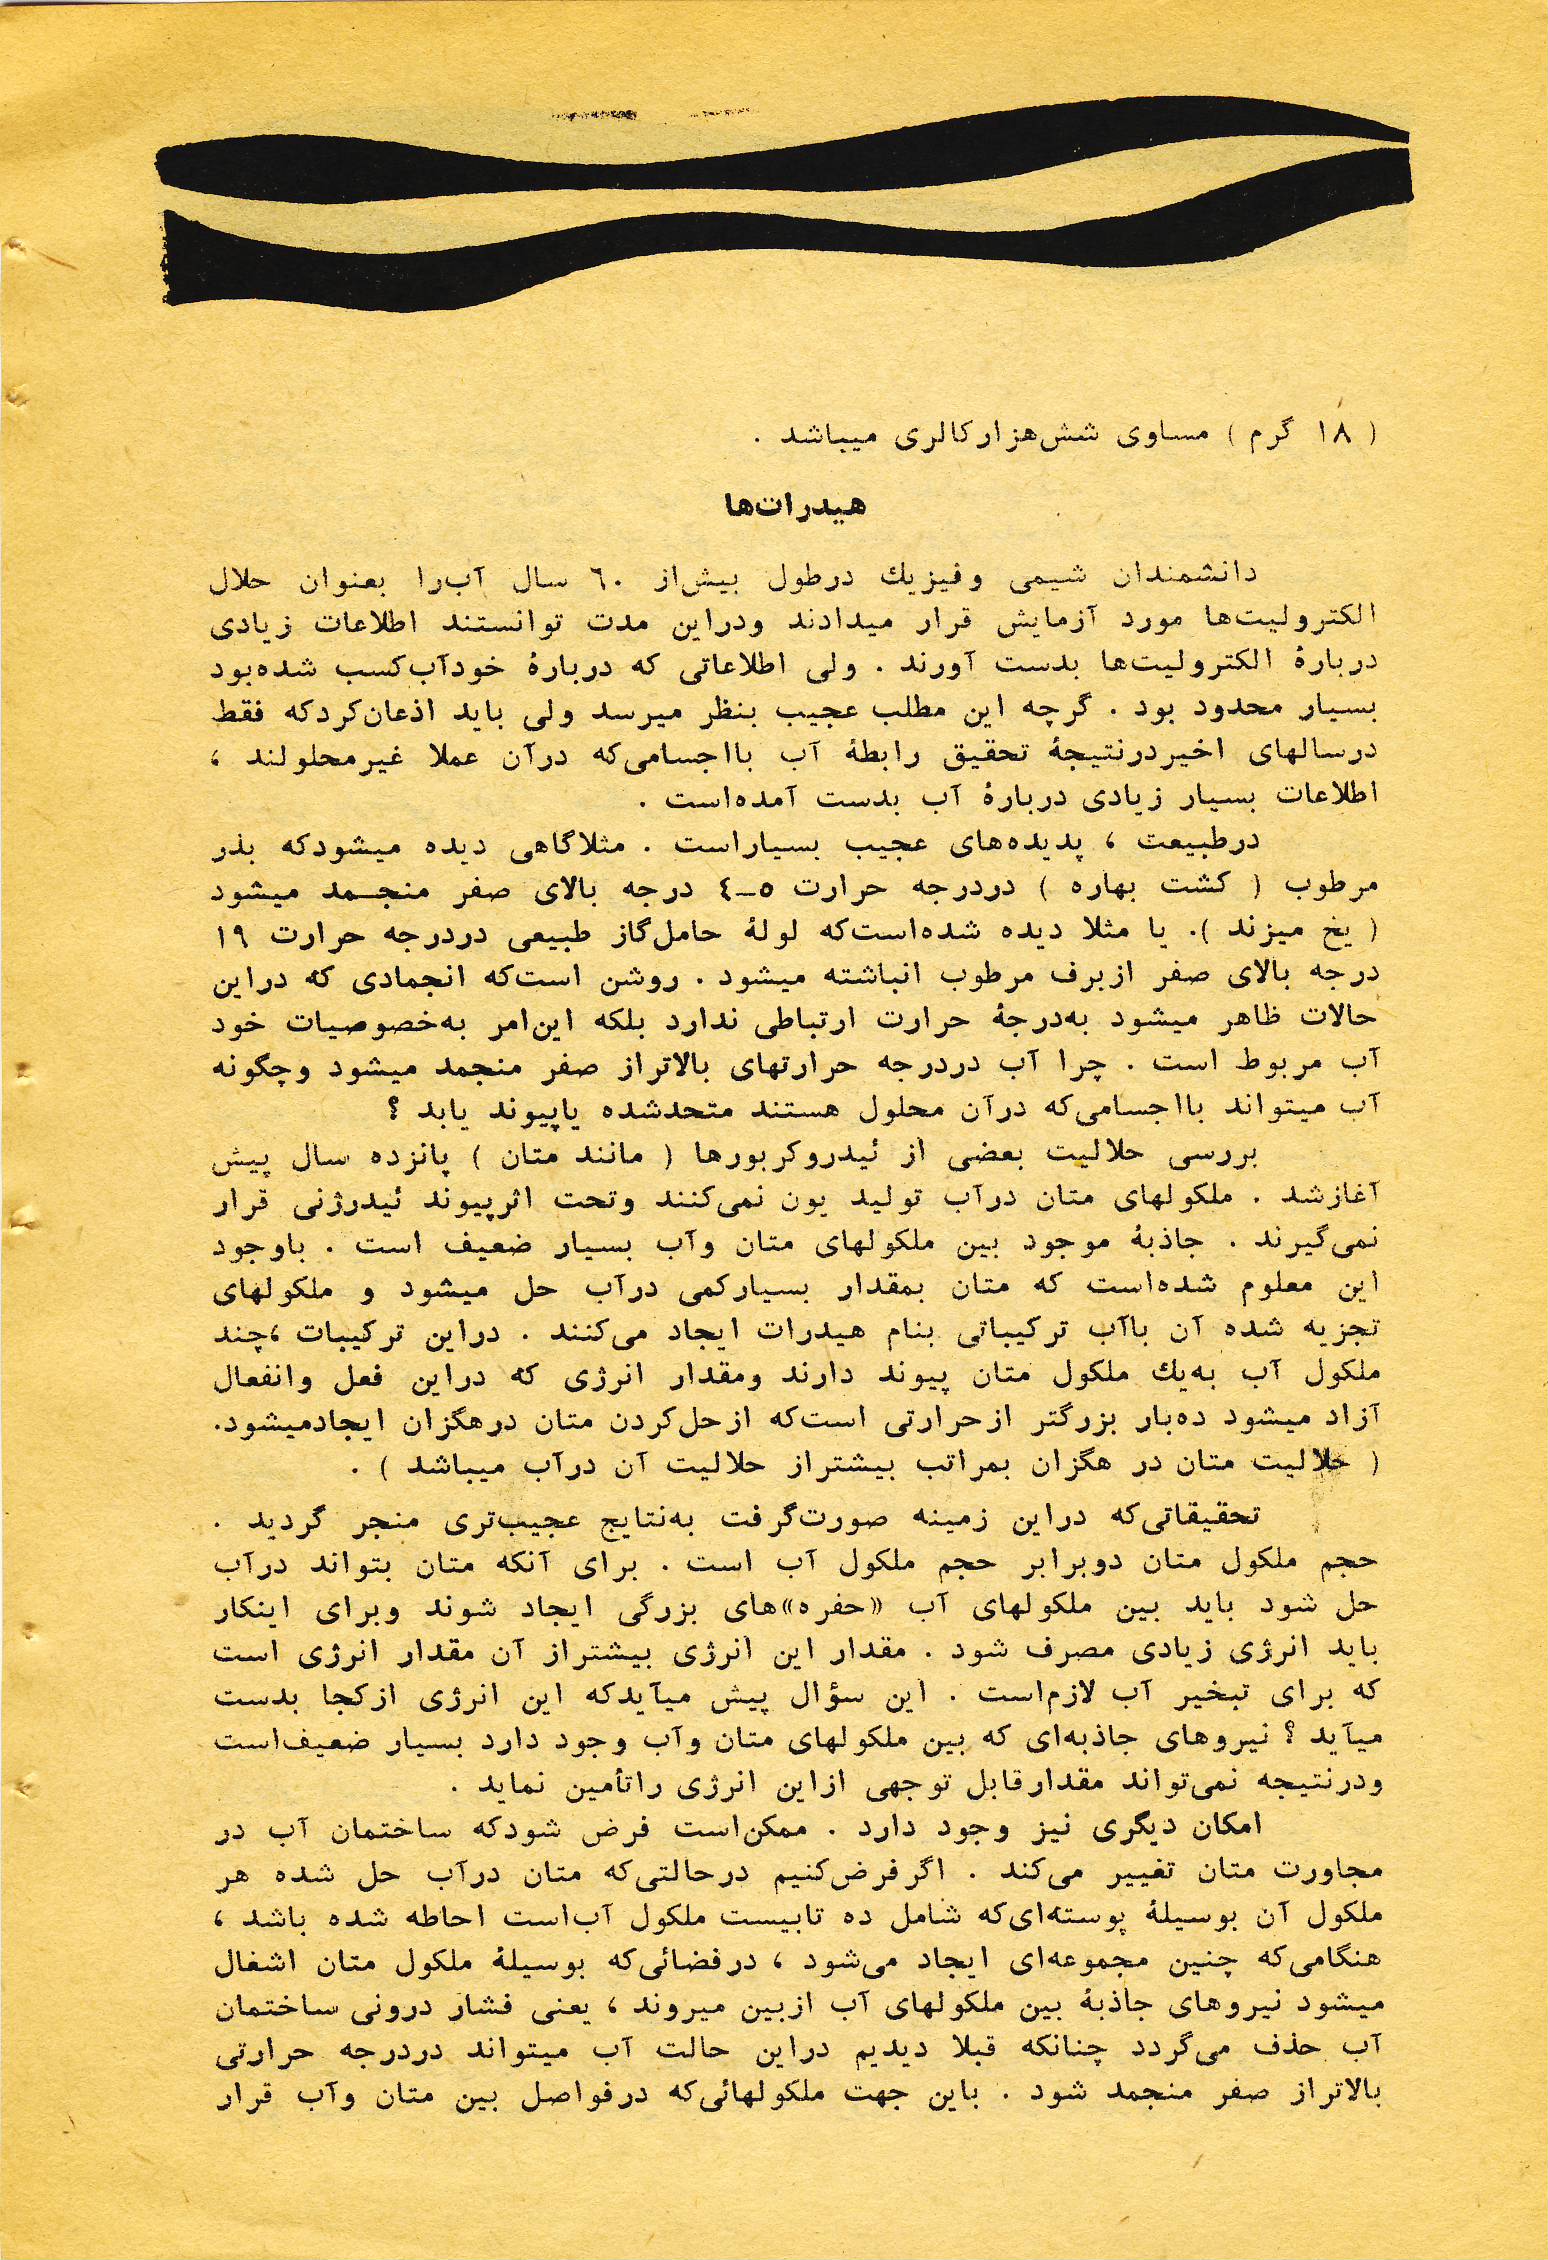 ( ۱۸ گرم ) مساوی شش‌هزار کالری میباشد .
هیدرات‌ها
دانشمندان شیمی وفیزیك درطول بیش‌از ٦۰ سال آب‌را بعنوان حلال
الکترولیت‌ها مورد آزمایش قرار میدادند ودراین مدت توانستند اطلاعات زیادی
دربارهٔ الکترولیت‌ها بدست آورند . ولی اطلاعاتی که دربارهٔ خودآب‌کسب شده‌بود
بسیار محدود بود . گرچه این مطلب عجیب بنظر میرسد ولی باید اذعان‌کردکه فقط
درسالهای اخیردرنتیجهٔ تحقیق رابطهٔ آب بااجسامی‌که درآن عملا غیرمحلولند ،
اطلاعات بسیار زیادی دربارهٔ آب بدست آمده‌است .
درطبیعت ، پدیده‌های عجیب بسیاراست . مثلاگاهی دیده میشودکه بذر
مرطوب ( کشت بهاره ) دردرجه حرارت ٥ــ٤ درجه بالای صفر منجمد میشود
( یخ میزند ). یا مثلا دیده شده‌است‌که لولهٔ حامل‌گاز طبیعی دردرجه حرارت ۱۹
درجه بالای صفر ازبرف مرطوب انباشته میشود . روشن است‌که انجمادی که دراین
حالات ظاهر میشود به‌درجهٔ حرارت ارتباطی ندارد بلکه این‌امر به‌خصوصیات خود
آب مربوط است . چرا آب دردرجه حرارتهای بالاتراز صفر منجمد میشود وچگونه
آب میتواند بااجسامی‌که درآن محلول هستند متحدشده یاپیوند یابد ؟
بررسی حلالیت بعضی از ئیدروکربورها ( مانند متان ) پانزده سال پیش
آغازشد . ملکولهای متان درآب تولید یون نمی‌کنند وتحت اثرپیوند ئیدرژنی قرار
نمی‌گیرند . جاذبهٔ موجود بین ملکولهای متان وآب بسیار ضعیف است . باوجود
این معلوم شده‌است که متان بمقدار بسیارکمی درآب حل میشود و ملکولهای
تجزیه شده آن باآب ترکیباتی بنام هیدرات ایجاد می‌کنند . دراین ترکیبات ،چند
ملکول آب به‌یك ملکول متان پیوند دارند ومقدار انرژی که دراین فعل وانفعال
آزاد میشود ده‌بار بزرگتر ازحرارتی است‌که ازحل‌کردن متان درهگزان ایجادمیشود.
( حلالیت متان در هگزان بمراتب بیشتراز حلالیت آن درآب میباشد ) .
تحقیقاتی‌که دراین زمینه صورت‌گرفت به‌نتایج عجیب‌تری منجر گردید .
حجم ملکول متان دوبرابر حجم ملکول آب است . برای آنکه متان بتواند درآب
حل شود باید بین ملکولهای آب «حفره»های بزرگی ایجاد شوند وبرای اینکار
باید انرژی زیادی مصرف شود . مقدار این انرژی بیشتراز آن مقدار انرژی است
که برای تبخیر آب لازم‌است . این سؤال پیش میآیدکه این انرژی ازکجا بدست
میآید ؟ نیروهای جاذبه‌ای که بین ملکولهای متان وآب وجود دارد بسیار ضعیف‌است
ودرنتیجه نمی‌تواند مقدارقابل توجهی ازاین انرژی راتأمین نماید .
امکان دیگری نیز وجود دارد . ممکن‌است فرض شودکه ساختمان آب در
مجاورت متان تغییر می‌کند . اگرفرض‌کنیم درحالتی‌که متان درآب حل شده هر
ملکول آن بوسیلهٔ پوسته‌ای‌که شامل ده تابیست ملکول آب‌است احاطه شده باشد ،
هنگامی‌که چنین مجموعه‌ای ایجاد می‌شود ، درفضائی‌که بوسیلهٔ ملکول متان اشغال
میشود نیروهای جاذبهٔ بین ملکولهای آب ازبین میروند ، یعنی فشار درونی ساختمان
آب حذف می‌گردد چنانکه قبلا دیدیم دراین حالت آب میتواند دردرجه حرارتی
بالاتراز صفر منجمد شود . باین جهت ملکولهائی‌که درفواصل بین متان وآب قرار